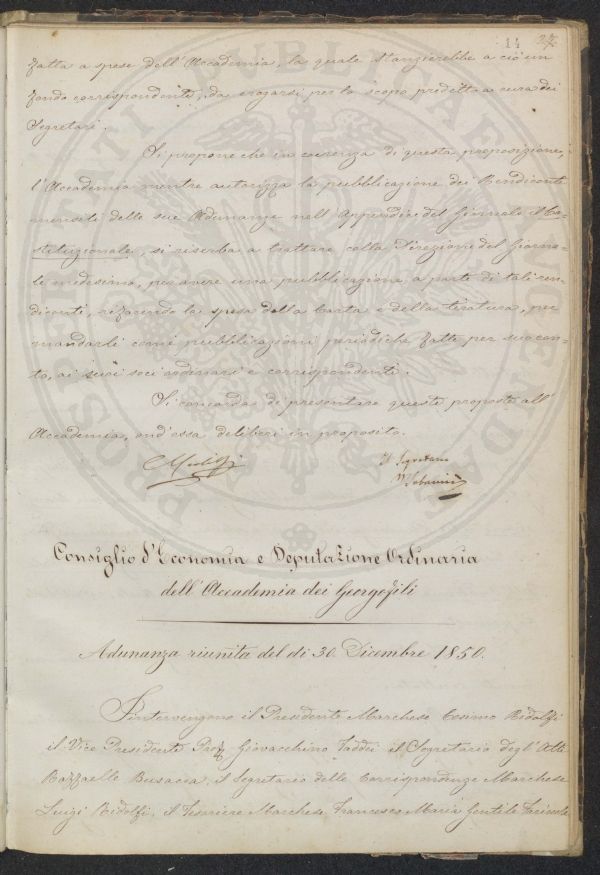 14 27
fatta a spese dell'Accademia, la quale stanzierebbe a ciò un
fondo corrispondente, da erogarsi per lo scopo predetto a cura dei
Segretari.
Si propone che in coerenza di questa proposizione,
l'Accademia mentre autorizza la pubblicazione dei Rendiconti
mensili delle sue Adunanze nell'Appendice del Giornale il Co-
stituzionale, si riserba a trattare colla Direzione del Giorna-
le medesimo, per avere una pubblicazione a parte di tali ren-
diconti, rifacendo la spesa della Carta e della tiratura, per
mandarli come pubblicazioni periodiche fatte per suo con-
to, ai suoi soci ordinari e corrispondenti.
Si concorda di presentare queste proposte all'
Accademia, ond'essa deliberi in proposito.
Il Segretario
Consiglio d'Economia e Deputazione Ordinaria
dell'Accademia dei Georgofili
Adunanza riunita del dì 30 Dicembre 1850.
S'intervengono il Presidente Marchese Cosimo Ridolfi
il Vice Presidente Prof. Giovacchino Taddei il Segretario degl'Atti
Raffaelle Busacca, il Segretario delle Corrispondenze Marchese
Luigi Ridolfi, il Tesoriere Marchese Francesco Maria Gentile Farinola
PROSPERITATI PUBLICAE AUGENDAE